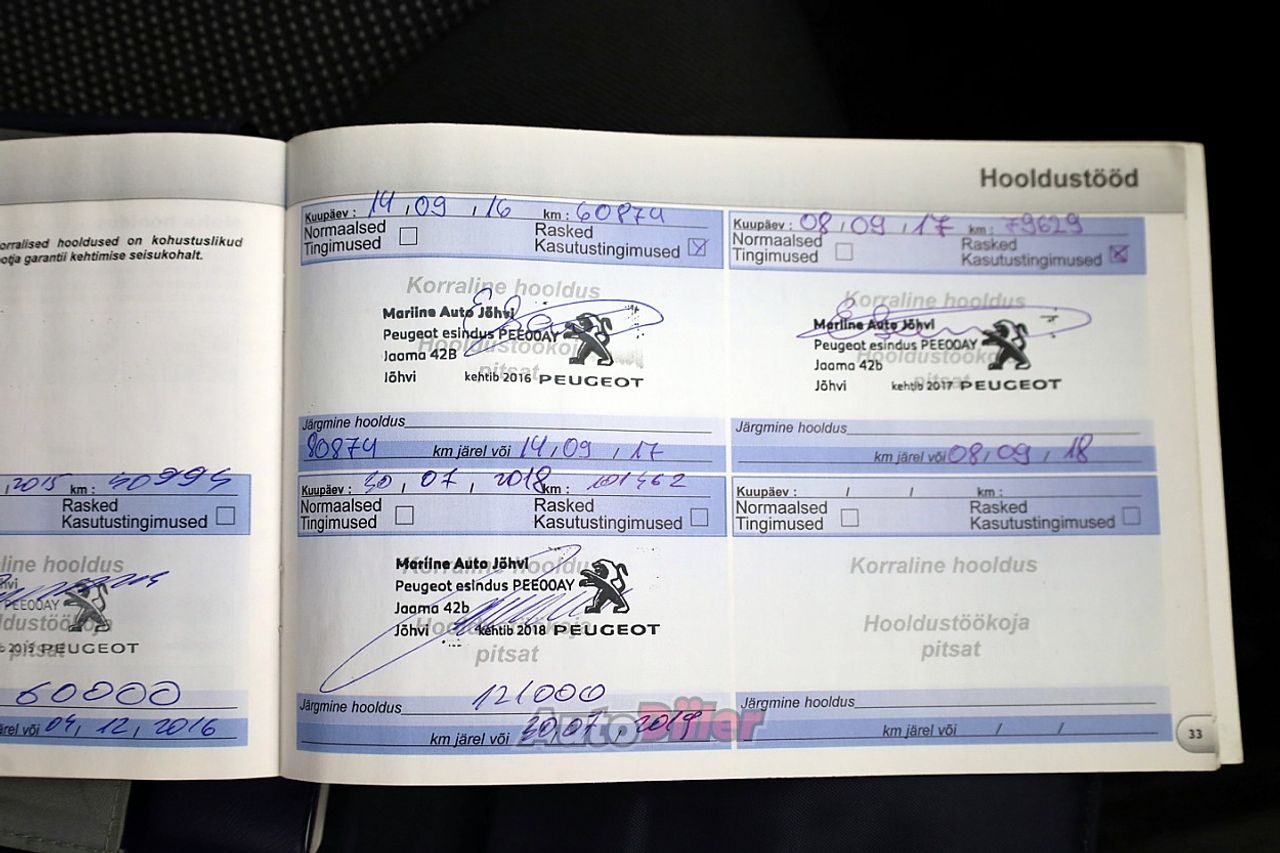 Hooldustööd
orralised hooldused on kohustuslikud
otja garantii kehtimise seisukohalt.
, 2015 km : 40994
Rasked
Kasutustingimused
line hooldus
PEE00AY
dustöökoja
2015 PEUGEOT
pitsat
60000
ärel või 04, 12, 2016
Kuupäev : 14 , 09 , 16 km : 60874
Normaalsed Rasked
Tingimused Kasutustingimused
Korraline hooldus
Mariine Auto Jõhvi
Peugeot esindus PEE00AY
Hooldustöökoja
Jaama 42B
pitsat
Jõhvi kehtib 2016 PEUGEOT
Järgmine hooldus
80874 km järel või 14 , 09 , 17
Kuupäev : 08 , 09 , 17 km : 79629
Normaalsed Rasked
Tingimused Kasutustingimused
Korraline hooldus
Mariine Auto Jõhvi
Peugeot esindus PEE00AY
Hooldustöökoja
Jaama 42b
pitsat
Jõhvi kehtib 2017 PEUGEOT
Järgmine hooldus
km järel või 08 / 09 , 18
Kuupäev : 30 / 07 / 2018 km : 101462
Normaalsed Rasked
Tingimused Kasutustingimused
Korraline hooldus
Mariine Auto Jõhvi
Peugeot esindus PEE00AY
Jaama 42b
Hooldustöökoja
Jõhvi kehtib 2018 PEUGEOT
pitsat
Järgmine hooldus 121000
km järel või 30 , 07 , 2019
AutoDiiler
Kuupäev : / / km :
Normaalsed Rasked
Tingimused Kasutustingimused
Korraline hooldus
Hooldustöökoja
pitsat
Järgmine hooldus
km järel või / /
33